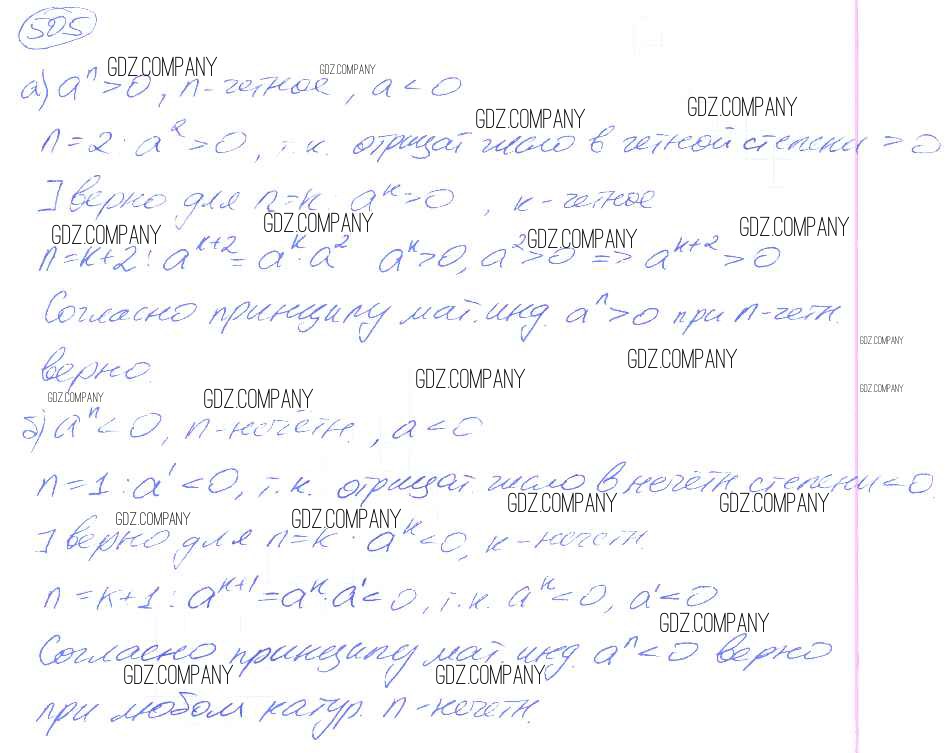 505
GDZ.COMPANY GDZ.COMPANY
а) aⁿ>0, n-четное, a<0
GDZ.COMPANY GDZ.COMPANY
n=2: a²>0, т.к. отрицат число в четной степени >0
] верно для n=k: aᵏ>0, k-четное
GDZ.COMPANY GDZ.COMPANY GDZ.COMPANY GDZ.COMPANY
n=k+2: aᵏ⁺²=aᵏ·a² aᵏ>0, a²>0 => aᵏ⁺²>0
Согласно принципу мат.инд. aⁿ>0 при n-четн.
GDZ.COMPANY
GDZ.COMPANY
верно.
GDZ.COMPANY
GDZ.COMPANY GDZ.COMPANY GDZ.COMPANY
б) aⁿ<0, n-нечётн., a<0
n=1: a¹<0, т.к. отрицат. число в нечётн степени <0.
GDZ.COMPANY GDZ.COMPANY
GDZ.COMPANY GDZ.COMPANY
] верно для n=k: aᵏ<0, k-нечетн.
n=k+1: aᵏ⁺¹=aᵏ·a¹<0, т.к. aᵏ<0, a¹<0
GDZ.COMPANY
Согласно принципу мат.инд. aⁿ<0 верно
GDZ.COMPANY GDZ.COMPANY
при любом натур. n-нечетн.